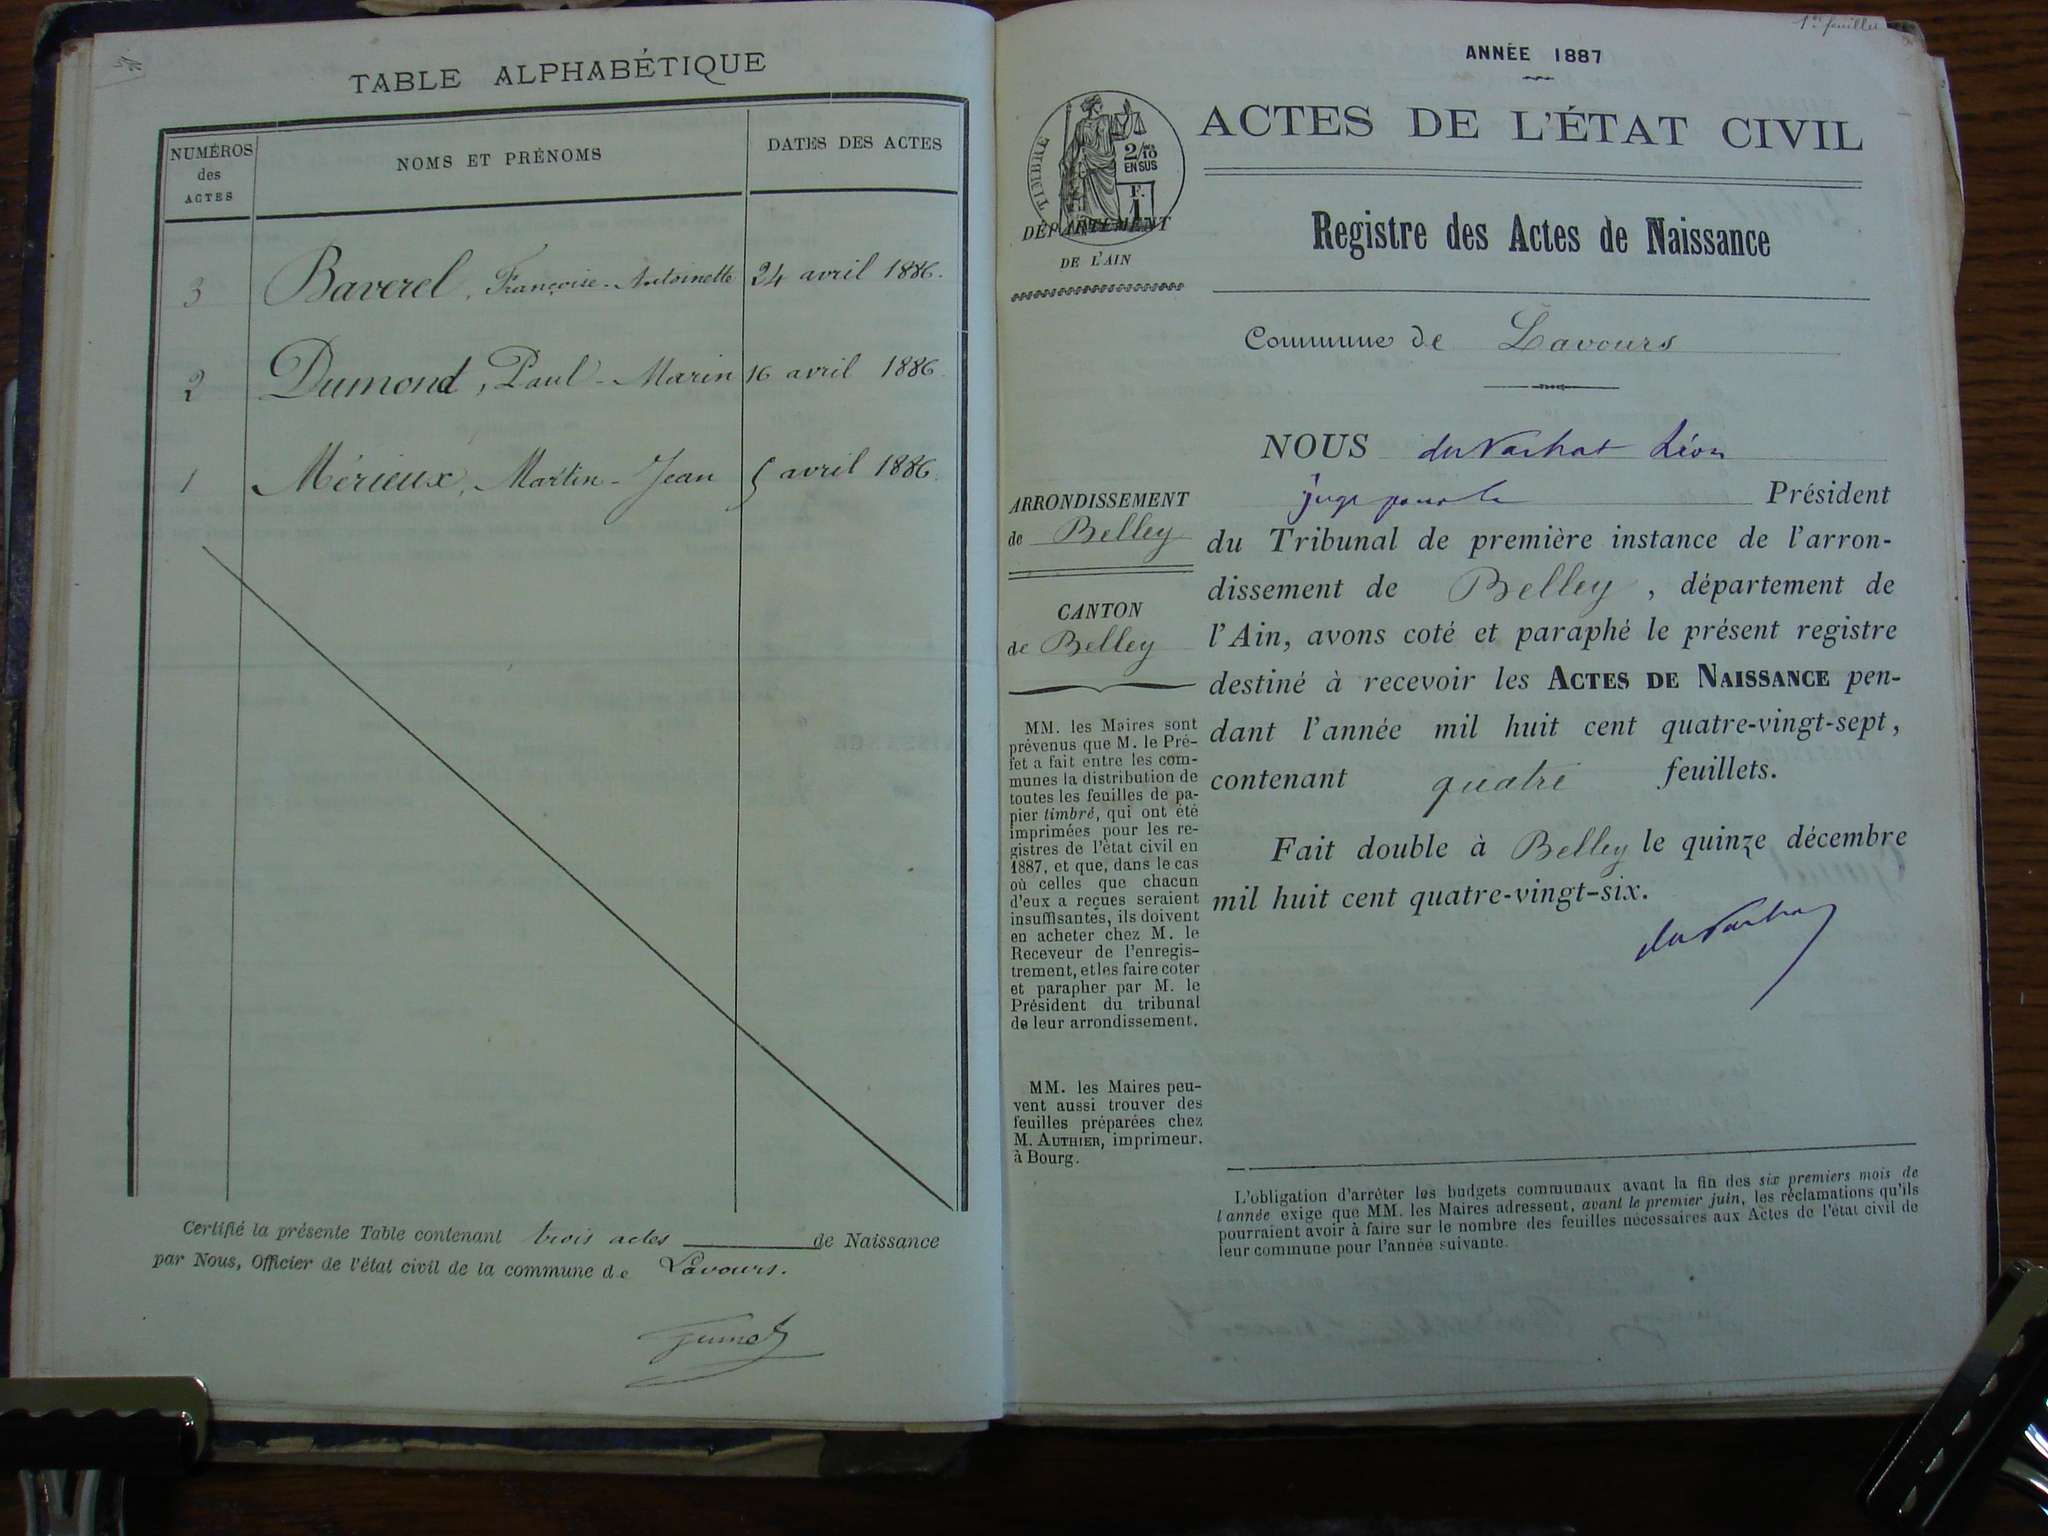 TABLE ALPHABÉTIQUE
NUMÉROS des ACTES
NOMS ET PRÉNOMS
DATES DES ACTES
3 Baverel, Françoise-Antoinette 24 avril 1886.
2 Dumond, Paul-Marin 16 avril 1886.
1 Mérieux, Martin-Jean 5 avril 1886.
Certifié la présente Table contenant trois actes de Naissance
par Nous, Officier de l'état civil de la commune de Lavours.
1er feuillet
ANNÉE 1887
TIMBRE
2/10ES
EN SUS
F.
1
DÉPARTEMENT
DE L'AIN
ACTES DE L'ÉTAT CIVIL
Registre des Actes de Naissance
Commune de Lavours
ARRONDISSEMENT
de Belley
CANTON
de Belley
MM. les Maires sont
prévenus que M. le Pré-
fet a fait entre les com-
munes la distribution de
toutes les feuilles de pa-
pier timbré, qui ont été
imprimées pour les re-
gistres de l'état civil en
1887, et que, dans le cas
où celles que chacun
d'eux a reçues seraient
insuffisantes, ils doivent
en acheter chez M. le
Receveur de l'enregis-
trement, et les faire coter
et parapher par M. le
Président du tribunal
de leur arrondissement.
MM. les Maires peu-
vent aussi trouver des
feuilles préparées chez
M. AUTHIER, imprimeur.
à Bourg.
NOUS Léon
juge pour le Président
du Tribunal de première instance de l'arron-
dissement de Belley, département de
l'Ain, avons coté et paraphé le présent registre
destiné à recevoir les ACTES DE NAISSANCE pen-
dant l'année mil huit cent quatre-vingt-sept,
contenant quatre feuillets.
Fait double à Belley le quinze décembre
mil huit cent quatre-vingt-six.
L'obligation d'arrêter les budgets communaux avant la fin des six premiers mois de
l'année exige que MM. les Maires adressent, avant le premier juin, les réclamations qu'ils
pourraient avoir à faire sur le nombre des feuilles nécessaires aux Actes de l'état civil de
leur commune pour l'année suivante.